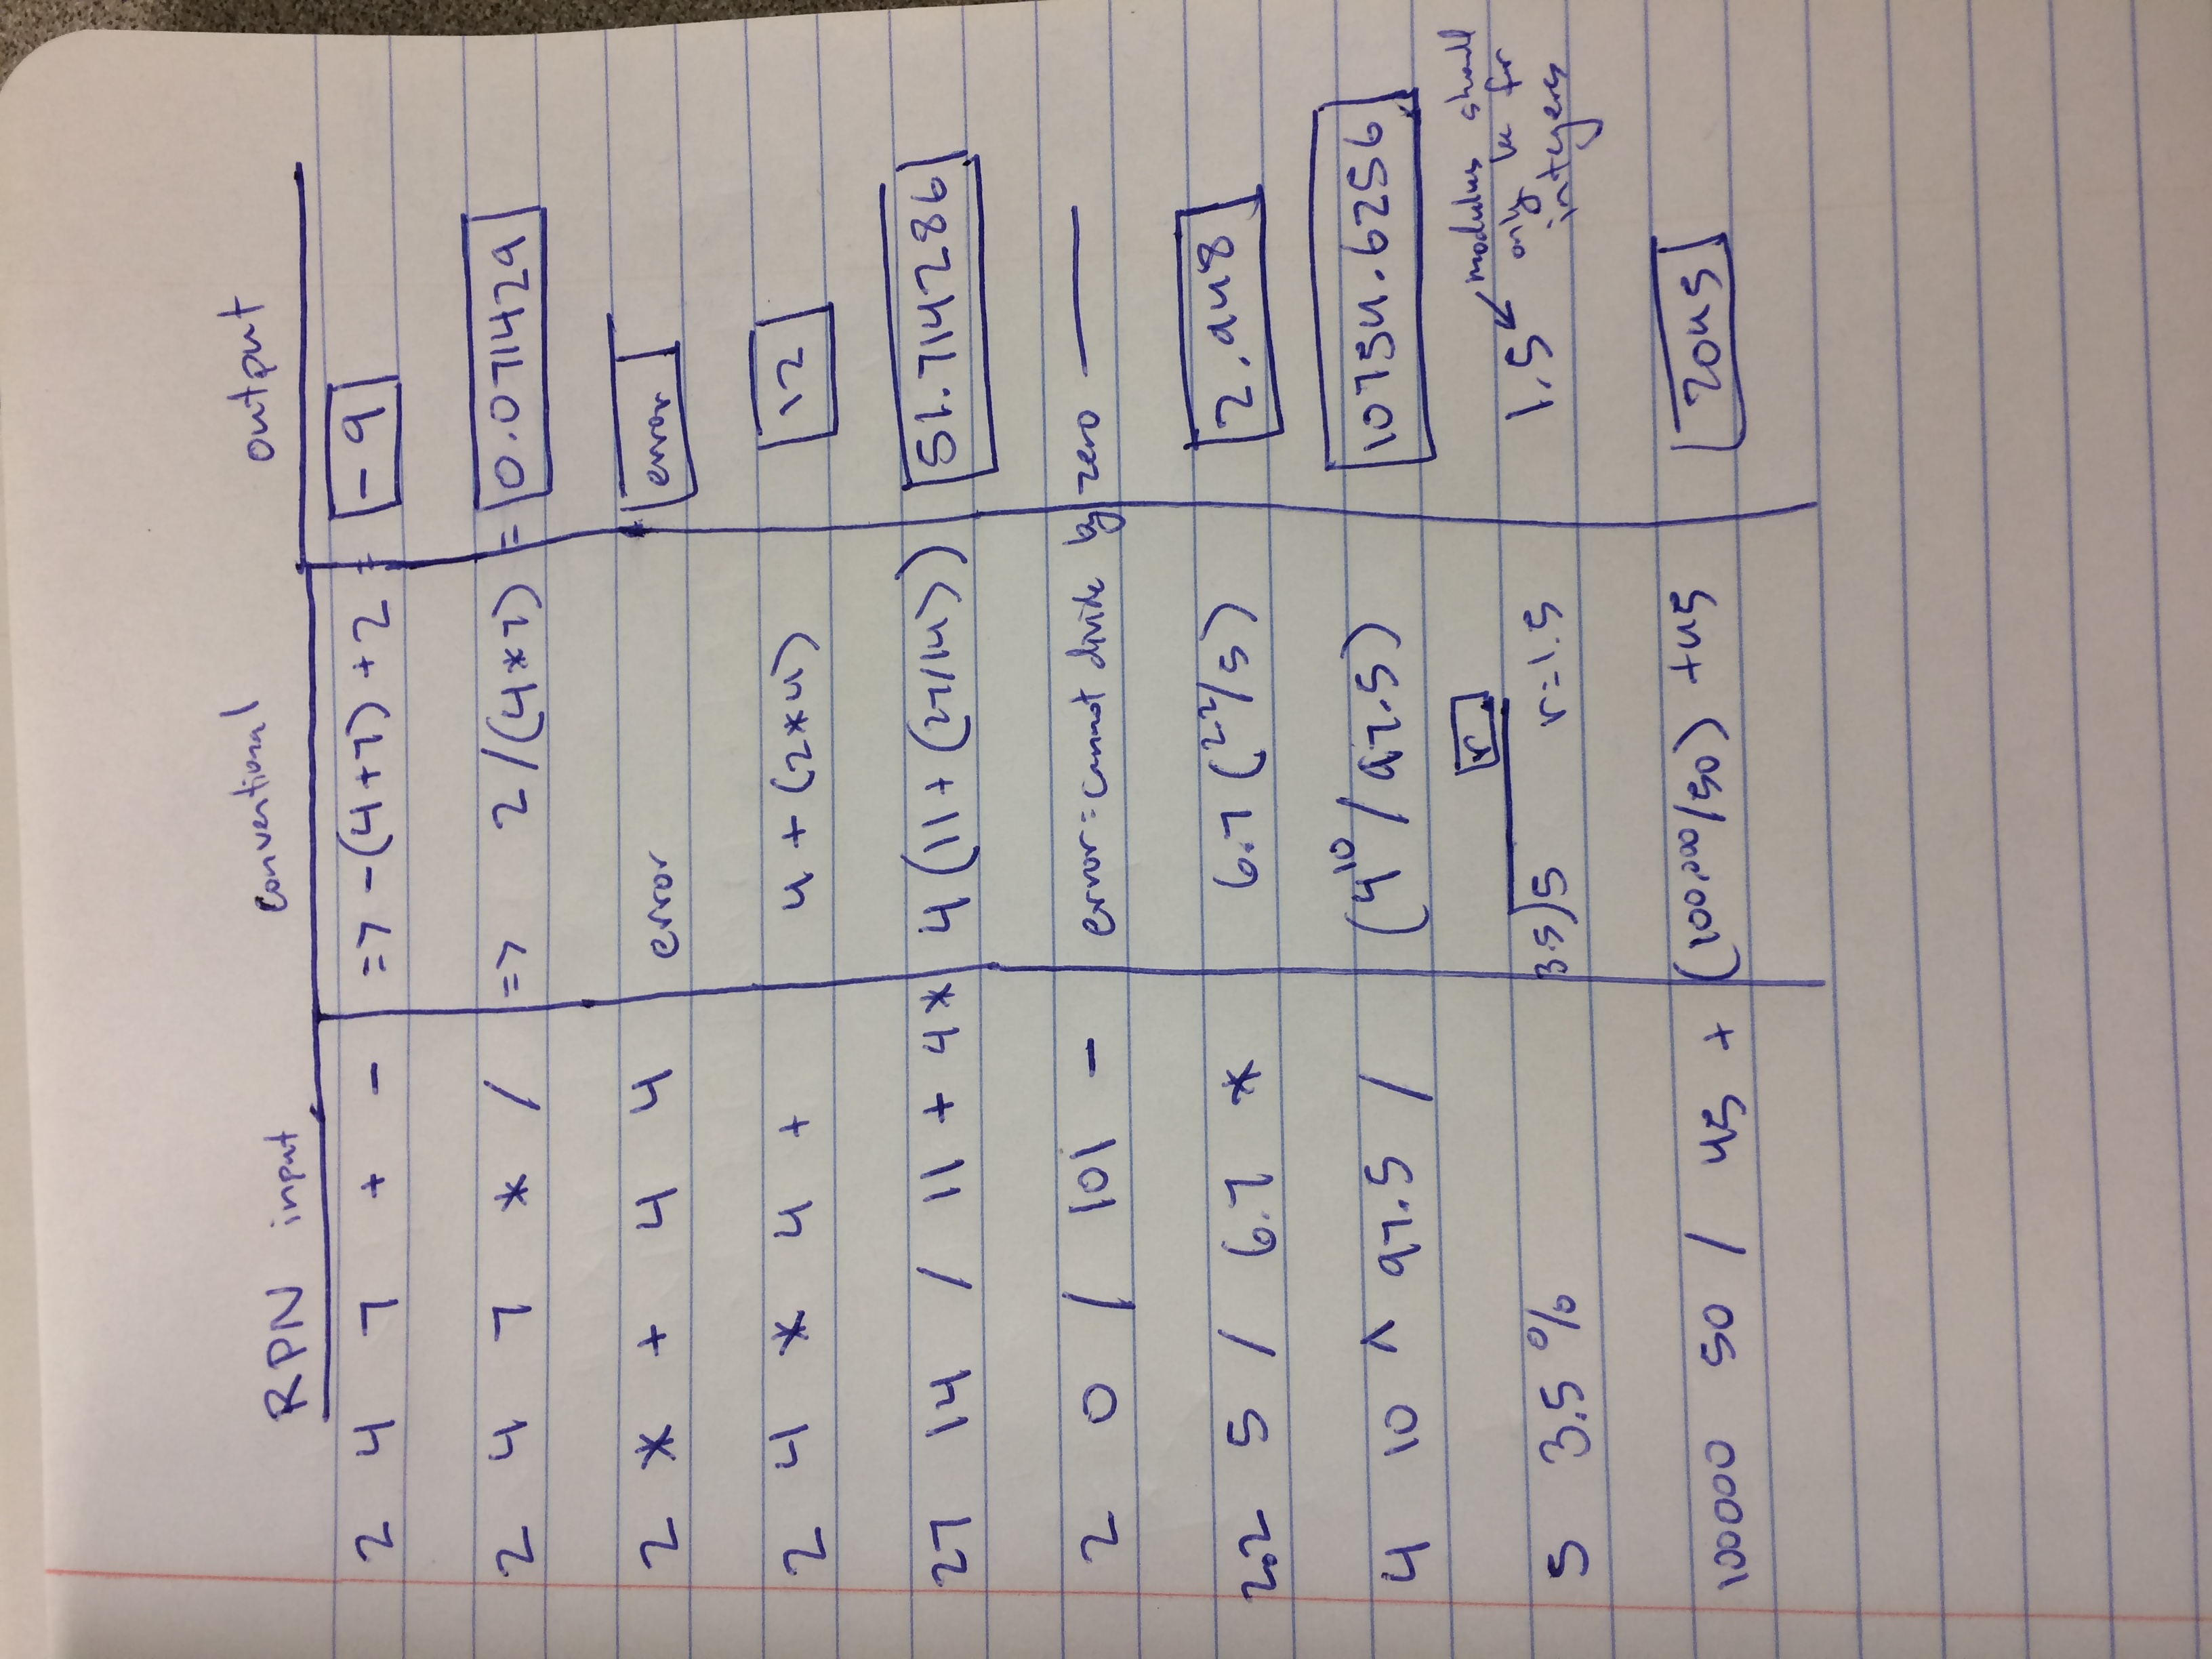 RPN input conventional output
2 4 7 + - => -(4+7) + 2 = -9
2 4 7 * / => 2/(4*7) = 0.071429
2 * + 4 4 error error
2 4 * 4 + 4 + (2*4) 12
27 14 / 11 + 4* 4(11+(27/14)) 51.714286
2 0 / 101 - error = cannot divide by zero —
2.2 5 / 6.7 * 6.7(2.2/5) 2.948
4 10 ^ 97.5 / (4^10/97.5) 10754.6256
r
5 3.5 % 3.5)5 r=1.5 1.5 ← modulus should
only be for
integers
100000 50 / 45 + (100,000/50) +45 2045